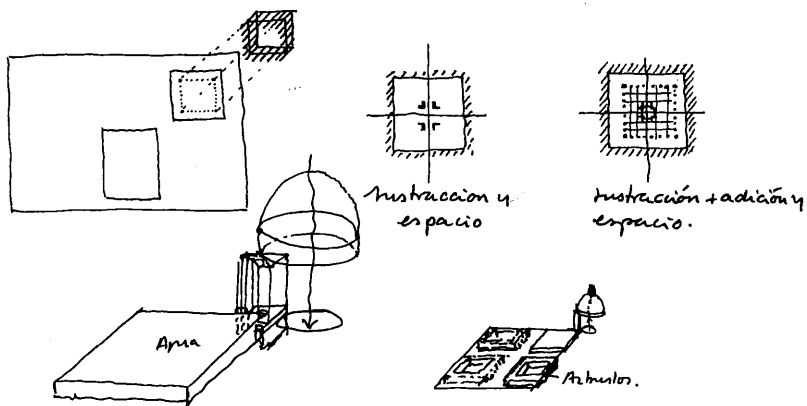 sustracción y
espacio
sustracción + adición y
espacio.
Agua
Arbustos.